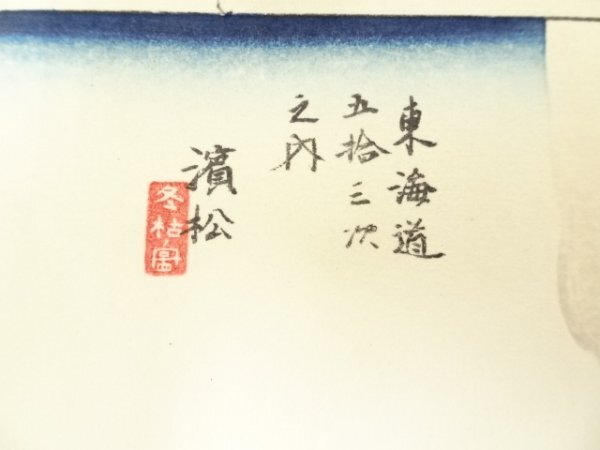 東海道
五拾三次
之内
濱松
冬枯ノ圖